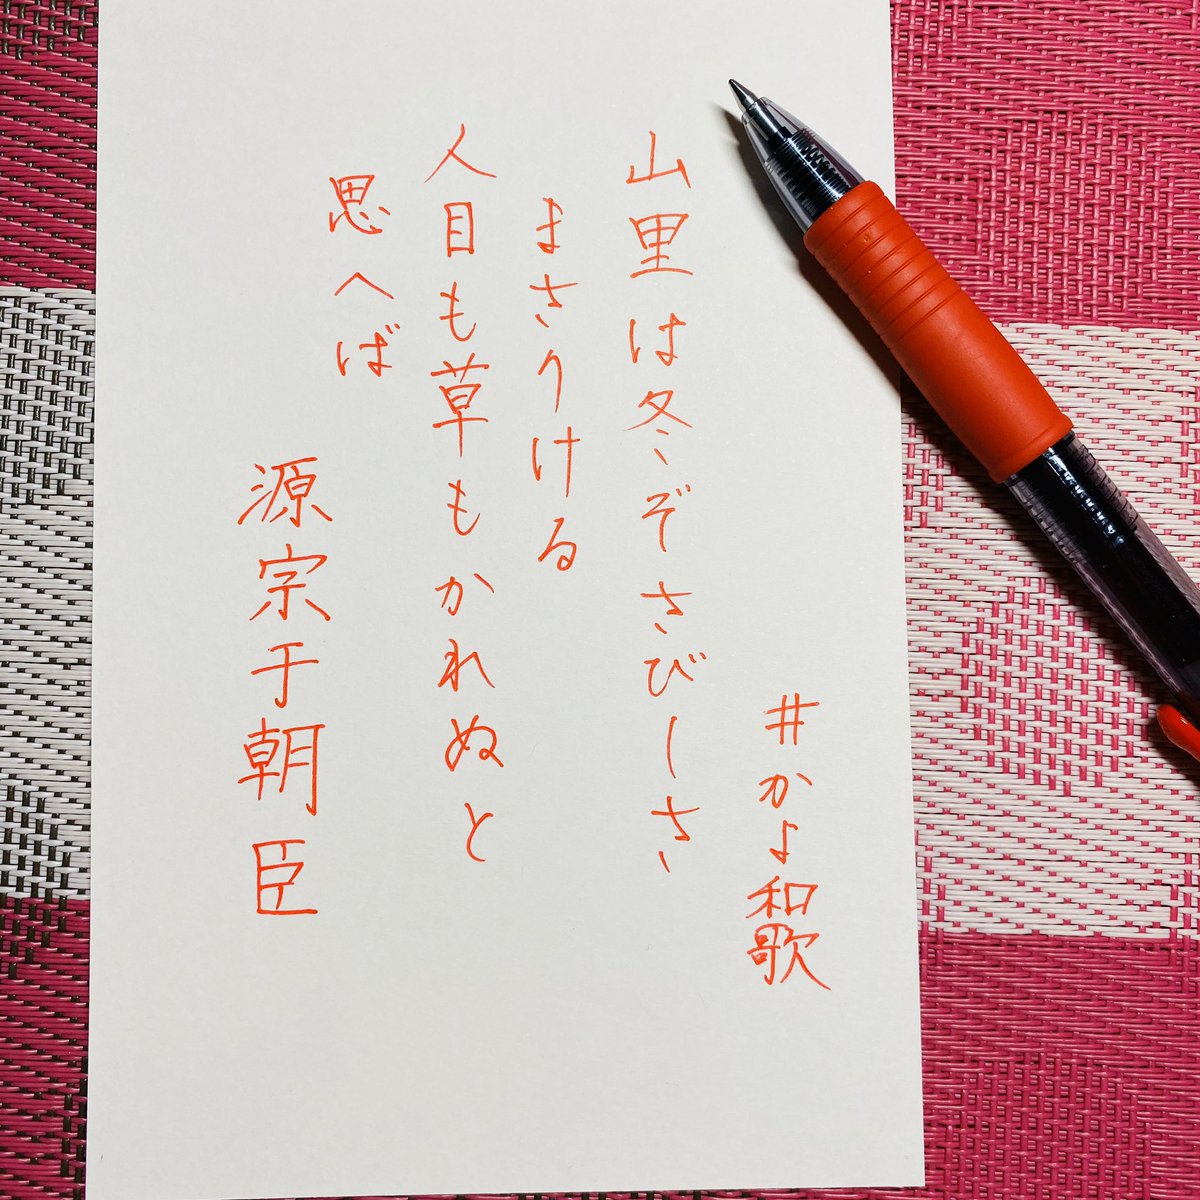 #かよ和歌
山里は冬ぞさびしさ
まさりける
人目も草もかれぬと
思へば
源宗于朝臣